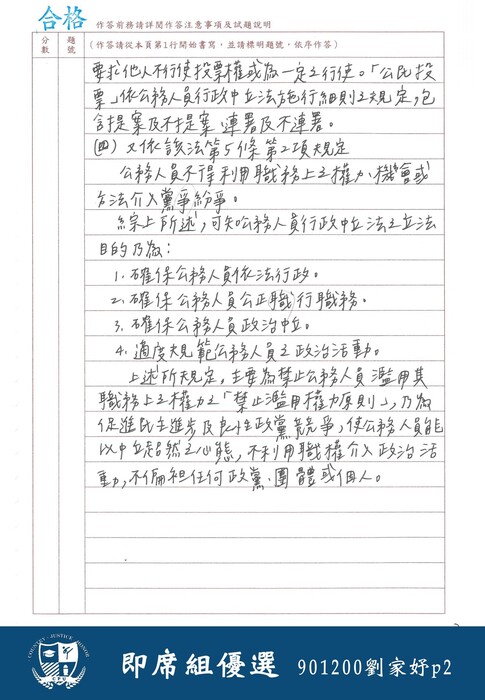 合格 作答前務請詳閱作答注意事項及試題說明
分數 題號 (作答請從本頁第1行開始書寫，並請標明題號，依序作答)
要求他人不行使投票權或為一定之行使。「公民投
票」依公務人員行政中立法施行細則之規定，包
含提案及不提案、連署及不連署。
(四) 又依該法第5條第2項規定
公務人員不得利用職務上之權力、機會或
方法介入黨爭紛爭。
綜上所述，可知公務人員行政中立法之立法
目的乃為：
1. 確保公務人員依法行政。
2. 確保公務人員公正職行職務。
3. 確保公務人員政治中立。
4. 適度規範公務人員之政治活動。
上述所規定，主要為禁止公務人員濫用其
職務上之權力之「禁止濫用權力原則」，乃為
促進民主進步及良性政黨競爭，使公務人員能
以中立超然之心態，不利用職權介入政治活
動，不偏袒任何政黨、團體或個人。
即席組優選 901200劉家妤p2